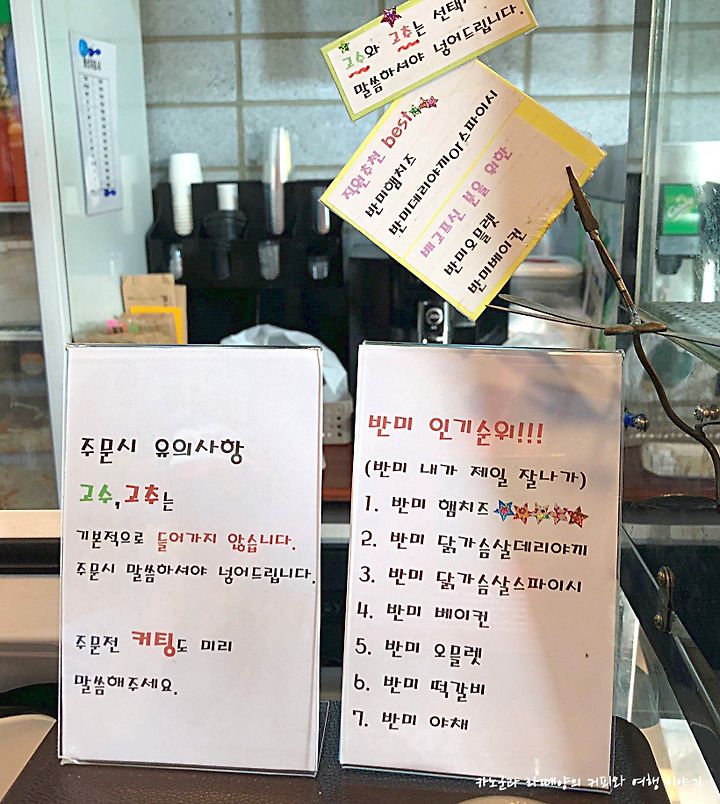 고수와 고추는 선택!
말씀하셔야 넣어드립니다.
직원추천 best
반미햄치즈
반미데리야끼or스파이시
배고프신 분을 위한
반미오믈렛
반미베이컨
주문시 유의사항
고수,고추는
기본적으로 들어가지 않습니다.
주문시 말씀하셔야 넣어드립니다.
주문전 커팅도 미리
말씀해주세요.
반미 인기순위!!!
(반미 내가 제일 잘나가)
1. 반미 햄치즈
2. 반미 닭가슴살데리야끼
3. 반미 닭가슴살스파이시
4. 반미 베이컨
5. 반미 오믈렛
6. 반미 떡갈비
7. 반미 야채
카노글라 라떼양의 커피와 여행 이야기